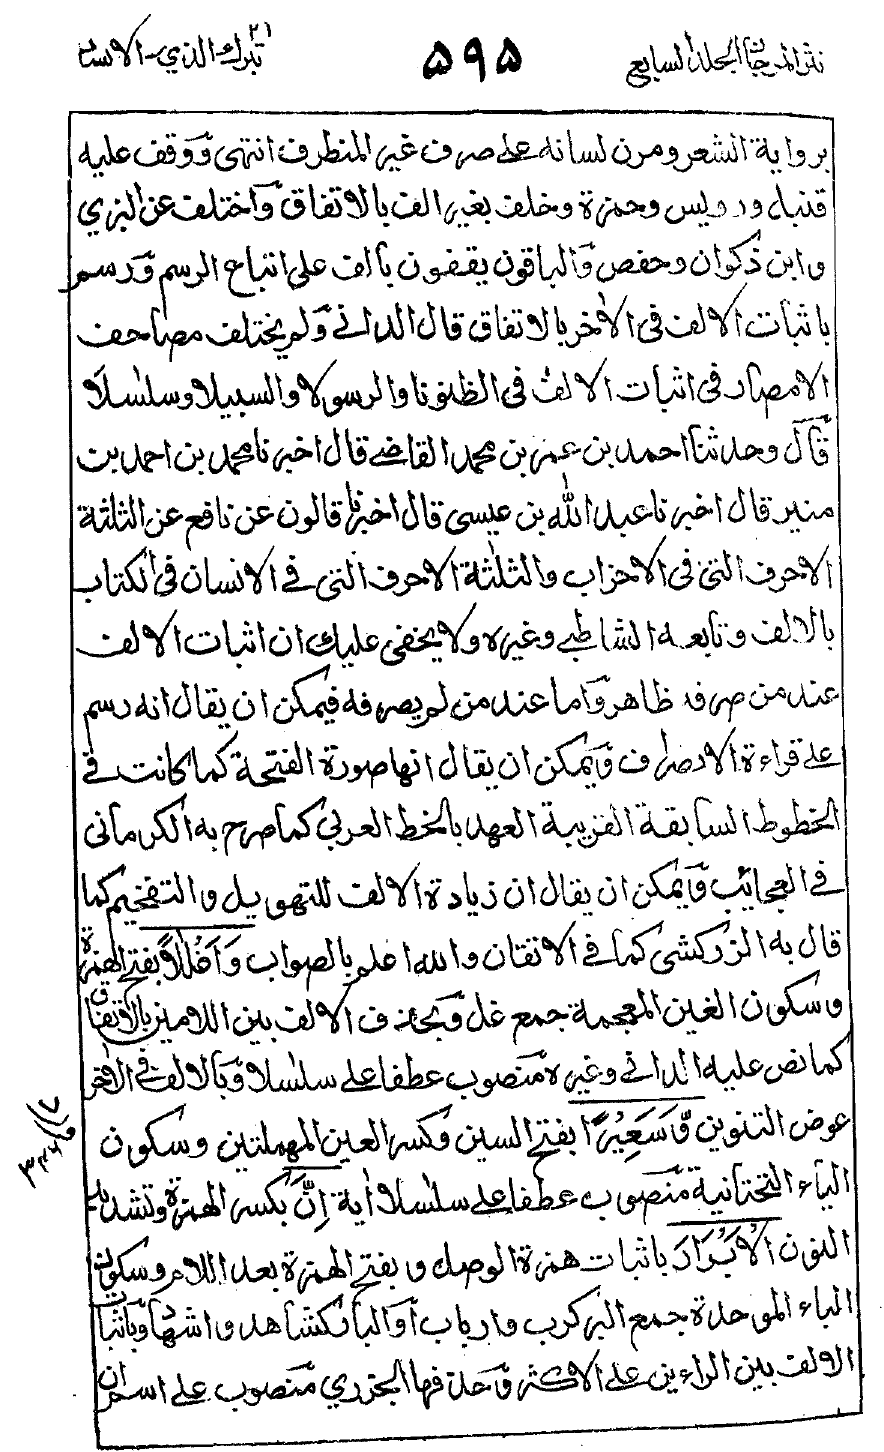 نثر المرجان الجلد السابع
۵۹۵
تبرك الذي ٢٩ - الانسان
برواية الشعر ومرن لسانه على صرف غير المنصرف انتهى ووقف عليه
قنبل ورويس وحمزة وخلف بغير الف بالاتفاق واختلف عن البزي
وابن ذكوان وحفص والباقون يقفون بالف على اتباع الرسم ورسم
باثبات الالف فى الاخر بالاتفاق قال الدانى ولم يختلف مصاحف
الامصار فى اثبات الالف فى الظنونا والرسولا والسبيلا وسلسلا
قال وحدثنا احمد بن عمر بن محمد القاضى قال اخبرنا محمد بن احمد بن
منير قال اخبرنا عبد الله بن عيسى قال اخبرنا قالون عن نافع عن الثلثة
الاحرف التى فى الاحزاب والثلثة الاحرف التى فى الانسان فى الكتاب
بالالف وتابعه الشاطبى وغيره ولا يخفى عليك ان اثبات الالف
عند من صرفه ظاهر واما عند من لم يصرفه فيمكن ان يقال انه رسم
على قراءة الانصراف ويمكن ان يقال انها صورة الفتحة كما كانت فى
الخطوط السابقة القريبة العهد بالخط العربى كما صرح به الكرمانى
فى العجايب ويمكن ان يقال ان زيادة الالف للتهويل والتفخيم كما
قال به الزركشى كما فى الاتقان والله اعلم بالصواب وَاَغْلٰلاً بفتح الهمزة
وسكون الغين المعجمة جمع غل وبحذف الالف بين اللامين بالاتفاق
كما نص عليه الدانى وغيره منصوب عطفا على سلسلا وبالالف فى الاخر
عوض التنوين وَّسَعِيْرًا بفتح السين وكسر العين المهملتين وسكون
الياء التحتانية منصوب عطفا على سلسلا اية اِنَّ بكسر الهمزة وتشديد
النون الْاَبْرَارَ باثبات همزة الوصل وبفتح الهمزة بعد اللام وسكون
الباء الموحدة جمع البر كرب وارباب او البار كشاهد واشهاد وباثبات
الالف بين الراءين على الاكثر وحذفها الجزري منصوب على اسم ان